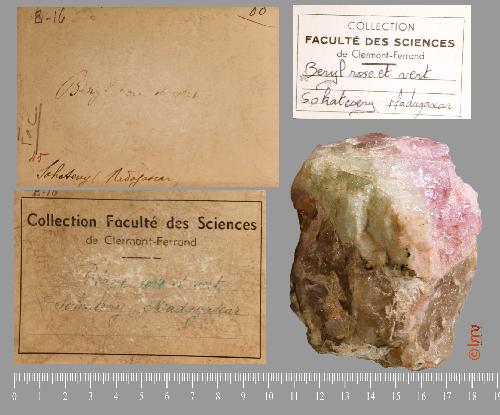 B-16
00
Béryl rose et vert
45
Sahateny, Madagascar
B-16
Collection Faculté des Sciences
de Clermont-Ferrand
rose et vert
Madagascar
COLLECTION
FACULTÉ DES SCIENCES
de Clermont-Ferrand
Beryl rose et vert
Sahateny Madagascar
0 1 2 3 4 5 6 7 8 9 10 11 12 13 14 15 16 17 18 19